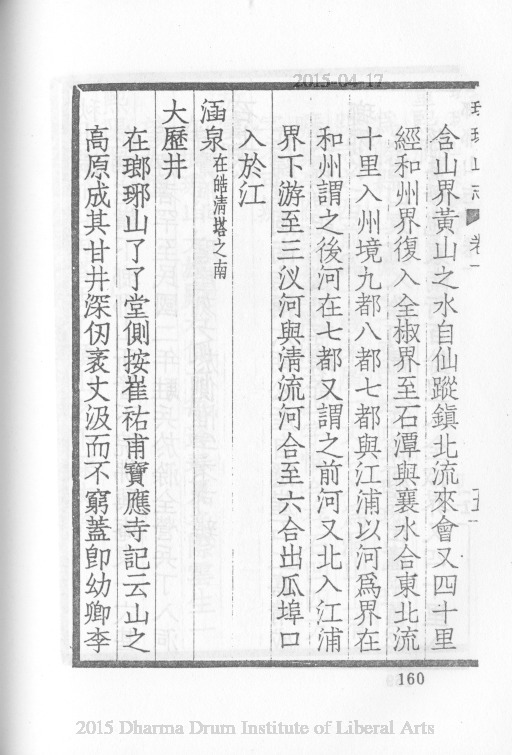 2015-04-17
琅琊山志 卷一
含山界黃山之水自仙蹤鎮北流來會又四十里
經和州界復入全椒界至石潭與襄水合東北流
十里入州境九都八都七都與江浦以河爲界在
和州謂之後河在七都又謂之前河又北入江浦
界下游至三汊河與清流河合至六合出瓜埠口
入於江
涵泉在皓清塔之南
大歷井
在瑯琊山了了堂側按崔祐甫寶應寺記云山之
高原成其甘井深仞袤丈汲而不窮蓋卽幼卿李
160
2015 Dharma Drum Institute of Liberal Arts